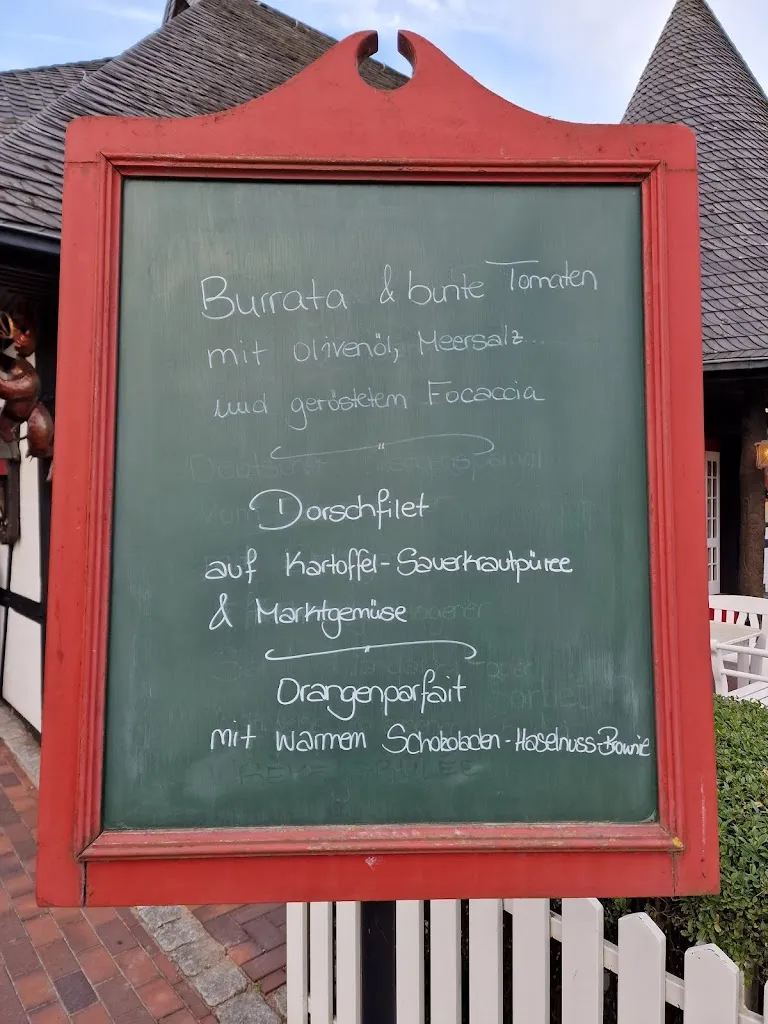 Burrata & bunte Tomaten
mit Olivenöl, Meersalz
und geröstetem Focaccia
Dorschfilet
auf Kartoffel-Sauerkrautpüree
& Marktgemüse
Orangenparfait
mit warmem Schokoladen-Haselnuss-Brownie